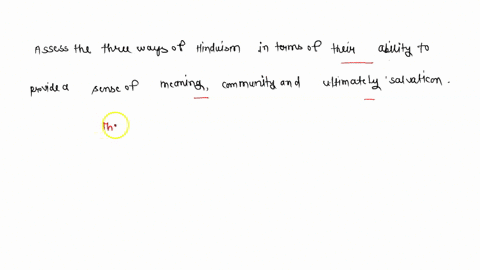 Assess the three ways of Hinduism in terms of their ability to
provide a sense of meaning, community and ultimately salvation.
Th